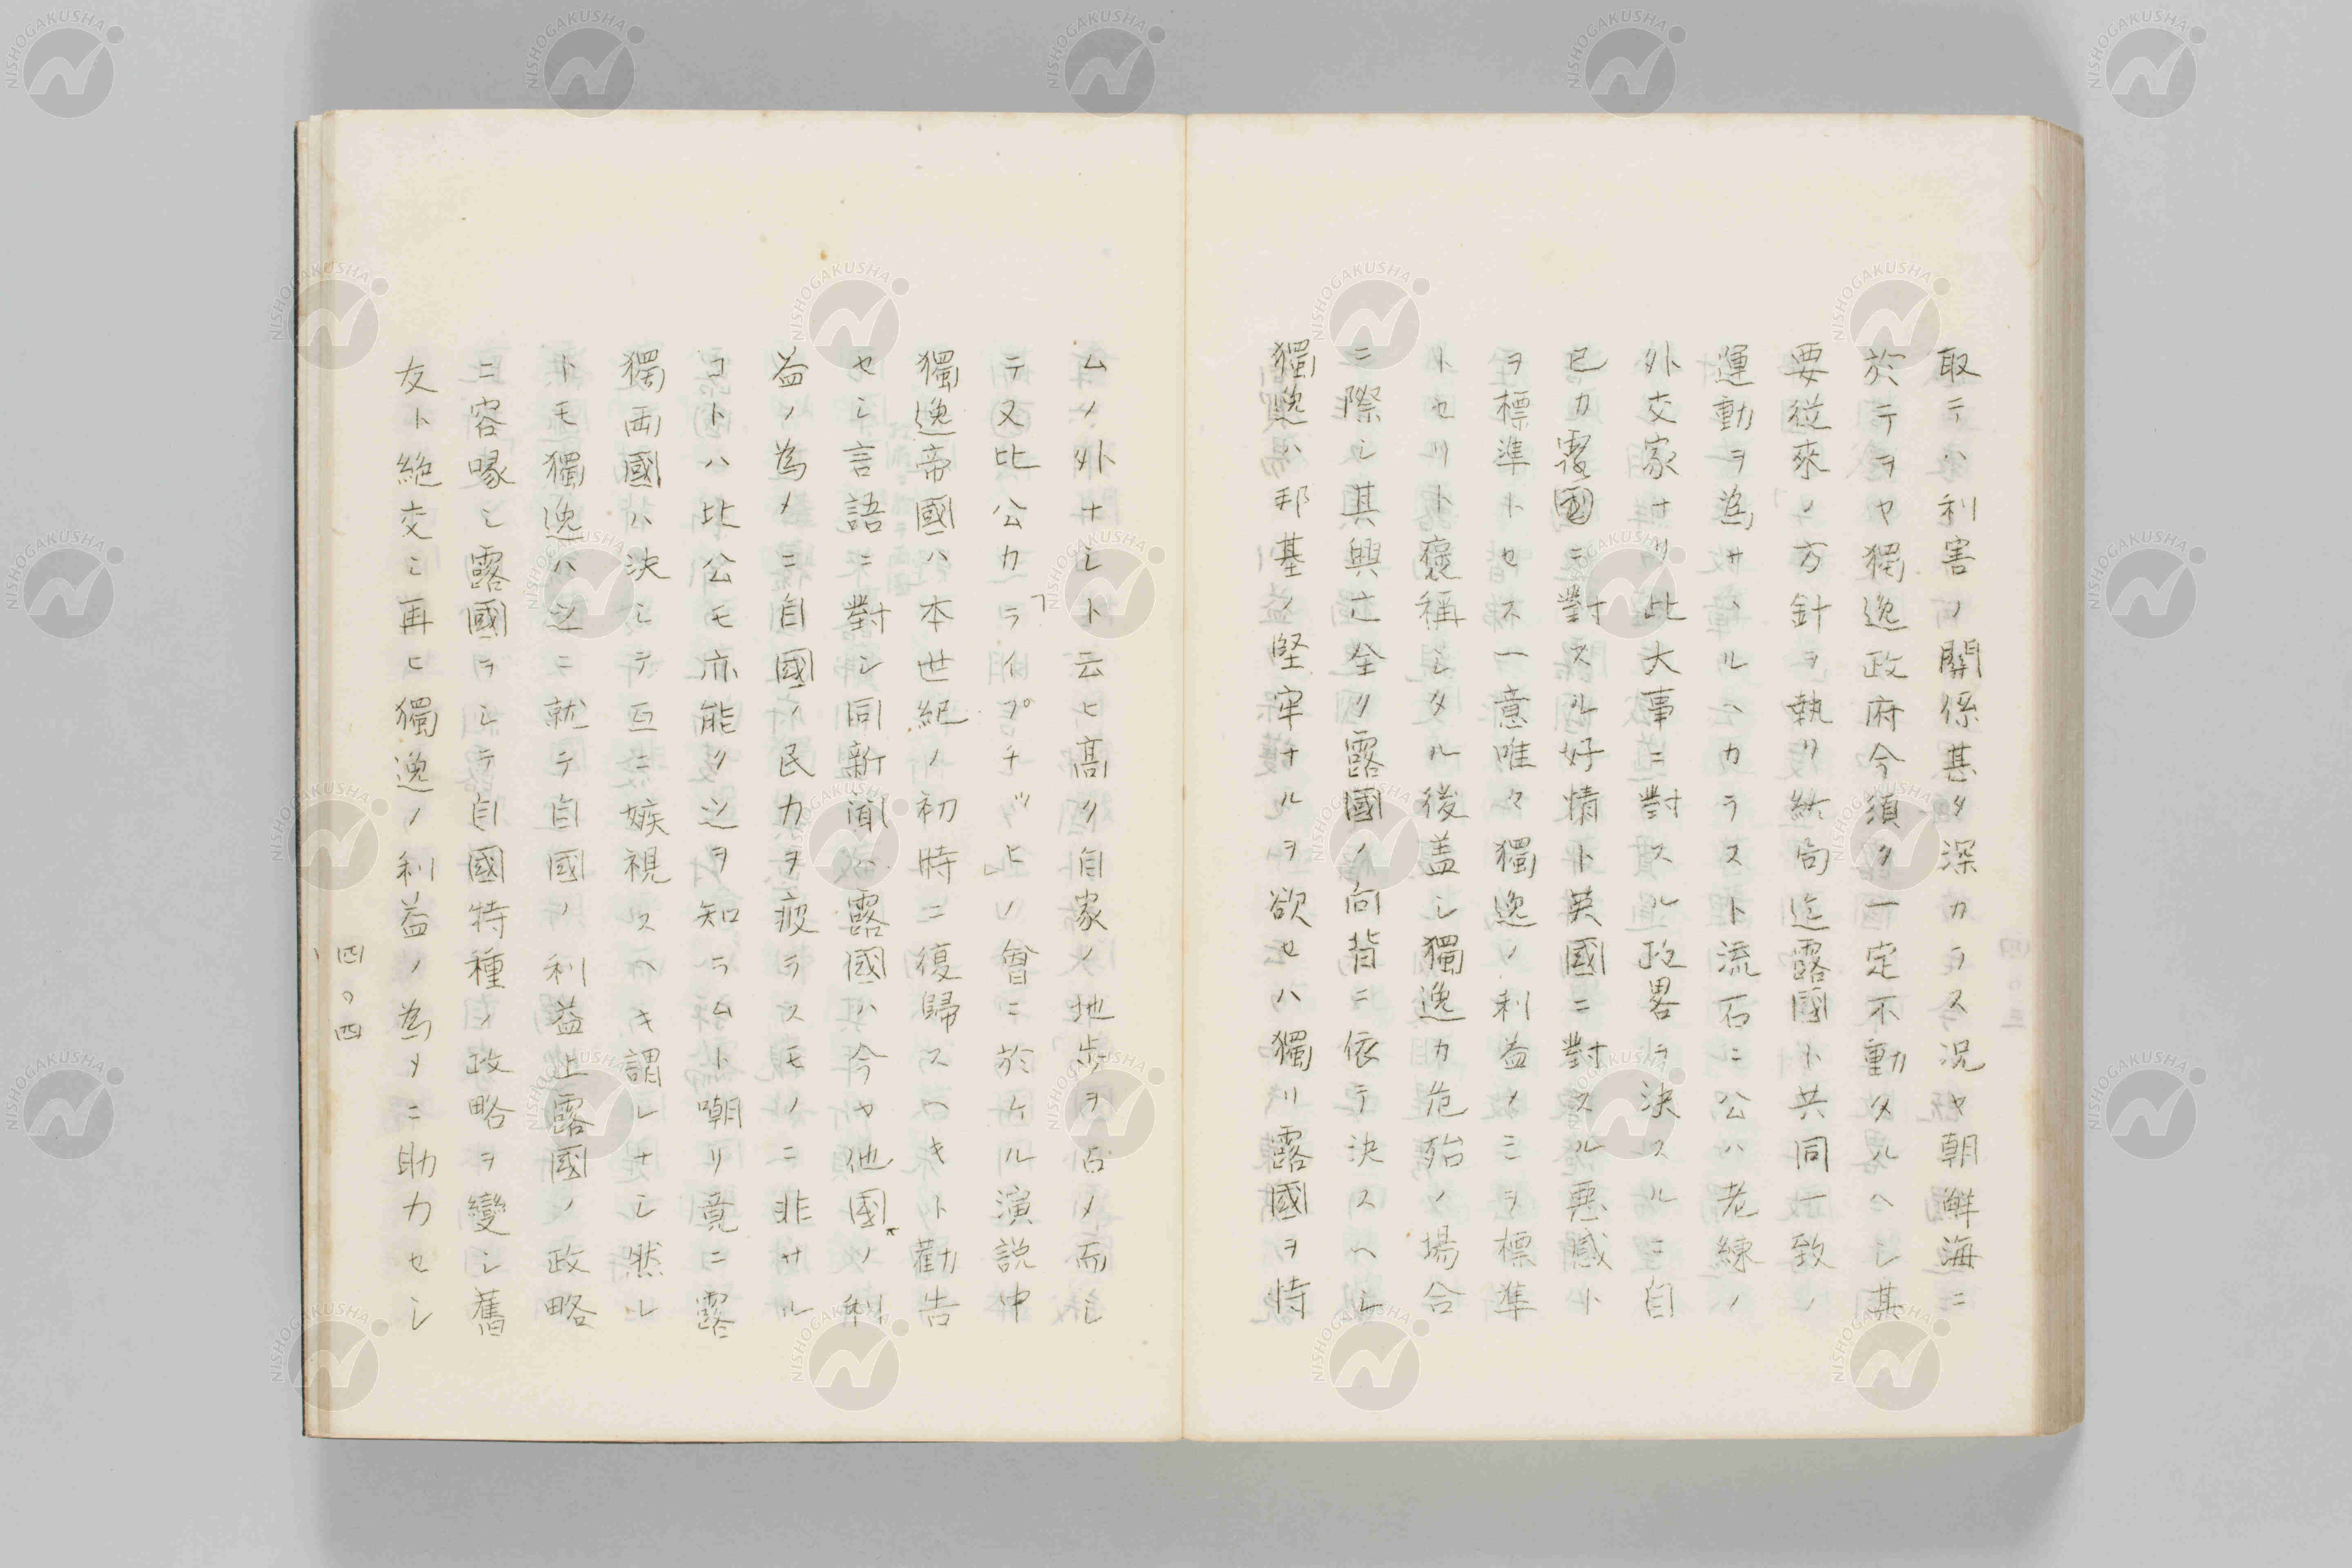 取テハ利害ノ關係甚タ深カラス況ヤ朝鮮海ニ
於テヲヤ獨逸政府今須ク一定不動タルヘシ其
要從來ノ方針ヲ執リ結局迄露國ト共同一致ノ
運動ヲ為サヽルヘカラスト流石ニ公ハ老練ノ
外交家ナリ此大事ニ對スル政畧ヲ決スルニ自
已カ露國ニ對スル好情ト英國ニ對スル悪感ト
ヲ標準トセス一意唯々獨逸ノ利益ノミヲ標準
トセリト褒稱シタル後蓋シ獨逸カ危殆ノ場合
ニ際シ其興亡全ク露國ノ向背ニ依テ決スヘシ
獨逸ハ邦基ノ堅牢ナルヲ欲セハ獨リ露國ヲ恃
ムノ外ナシト云ヒ高ク自家ノ地歩ヲ占メ而シ
テ又比公カ「ライプチッヒ」ノ會ニ於ケル演説中
獨逸帝國ハ本世紀ノ初時ニ復歸スヘキト勸告
セシ言語ニ對シ同新聞ハ露國ハ今ヤ他国ノ利
益ノ為メニ自國ノ民力ヲ疲ラスモノニ非サル
コトハ比公モ亦能ク之ヲ知ラムト嘲リ竟ニ露
獨両國ハ決シテ互ニ嫉視スヘキ謂レナシ然レ
トモ獨逸ハ之ニ就テ自國ノ利益上露國ノ政略
ニ容喙シ露國ヲシテ自國特種ノ政略ヲ變シ舊
友ト絶交シ再ヒ獨逸ノ利益ノ為メニ助力セシ
四〇四
NISHOGAKUSHA